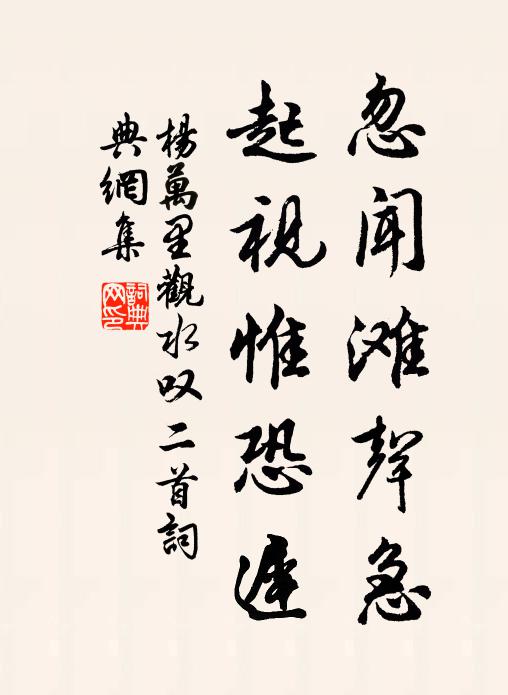 忽闻滩聲急
起視惟恐遲
楊萬里觀水叹二首詞
典網集
詞典
网印